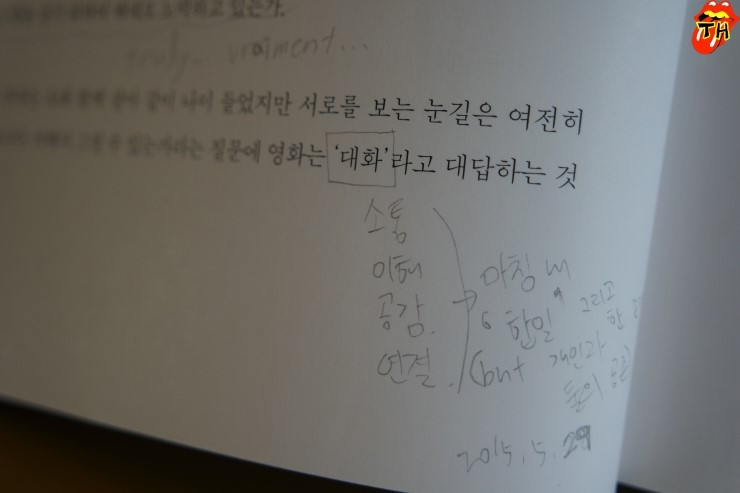 노력하고 있는가.
truly... vraiment...
같이 나이 들었지만 서로를 보는 눈길은 여전히
있는가라는 질문에 영화는 '대화'라고 대답하는 것
소통
이해
공감.
연결.
마침내
"합일" 그리고
(but 개인과
둘의 공존)
2015. 5. 29
TH